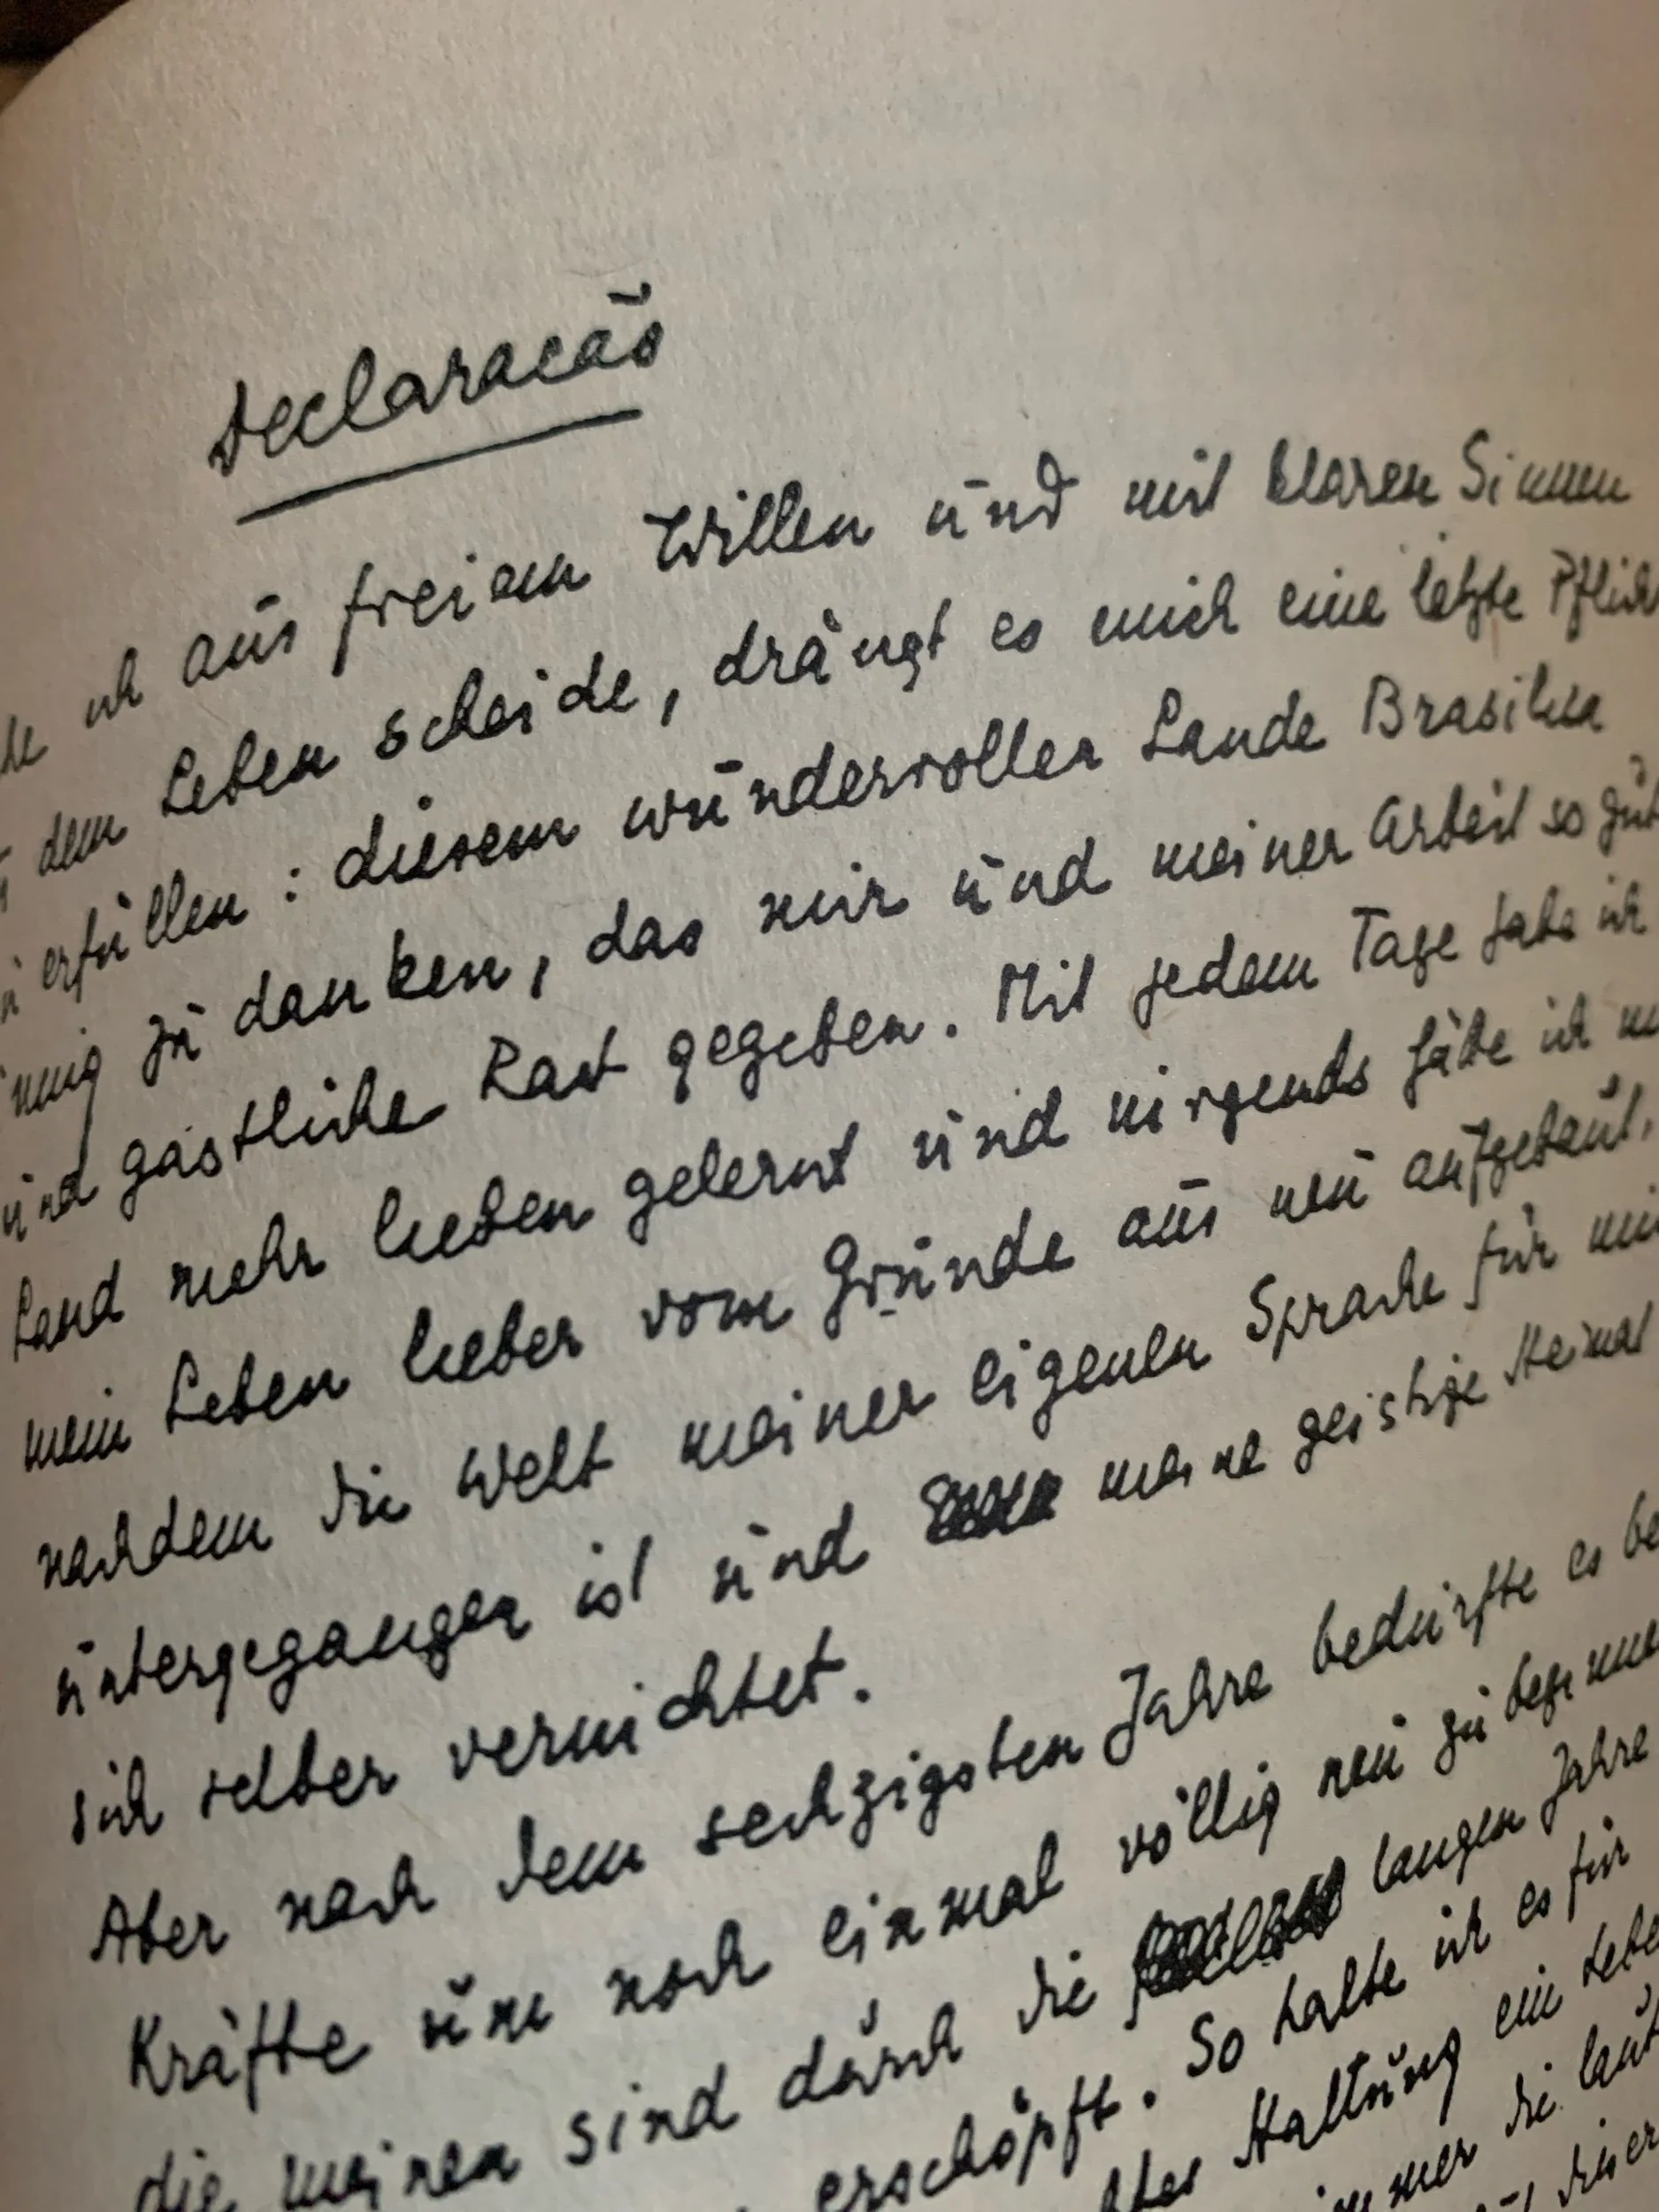 Declaracão
ich aus freiem Willen und mit klaren Sinnen
dem Leben scheide, drängt es mich eine letzte Pflich
erfüllen : diesem wundervollen Lande Brasilien
innig zu danken, das mir und meiner Arbeit so gut
und gastliche Rast gegeben. Mit jedem Tage habe ich
Land mehr lieben gelernt und nirgends hätte ich
mein Leben lieber vom Grunde aus neu aufgebaut,
nachdem die Welt meiner eigenen Sprache für
untergegangen ist und meine geistige Heimat
sich selber vernichtet.
Aber nach dem sechzigsten Jahre bedürfte es be
Kräfte um noch einmal völlig neu zu beginnen
die meinen sind durch die langen Jahre
erschöpft. So halte ich es für
Haltung ein Lebe
immer die laut
dieser